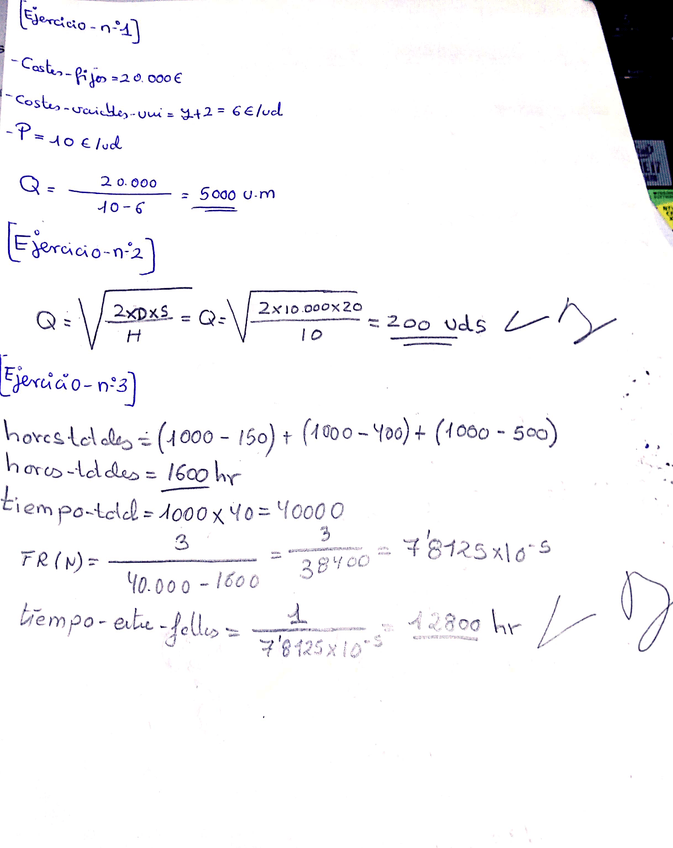 [Ejercicio-nº1]
-Costes-fijos=20.000€
-Costes-variables-uni=4+2=6€/ud
-P=10€/ud
Q = 20.000 / 10-6 = 5000 u.m
[Ejercicio-nº2]
Q = √(2xDxS / H) = Q = √(2x10.000x20 / 10) = 200 uds
[Ejercicio-nº3]
horas totales = (1000-150)+(1000-400)+(1000-500)
horas-totales = 1600 hr
tiempo-total = 1000 x 40 = 40000
FR(N) = 3 / 40.000-1600 = 3 / 38400 = 7'8125x10⁻⁵
tiempo-entre-fallos = 1 / 7'8125x10⁻⁵ = 12800 hr